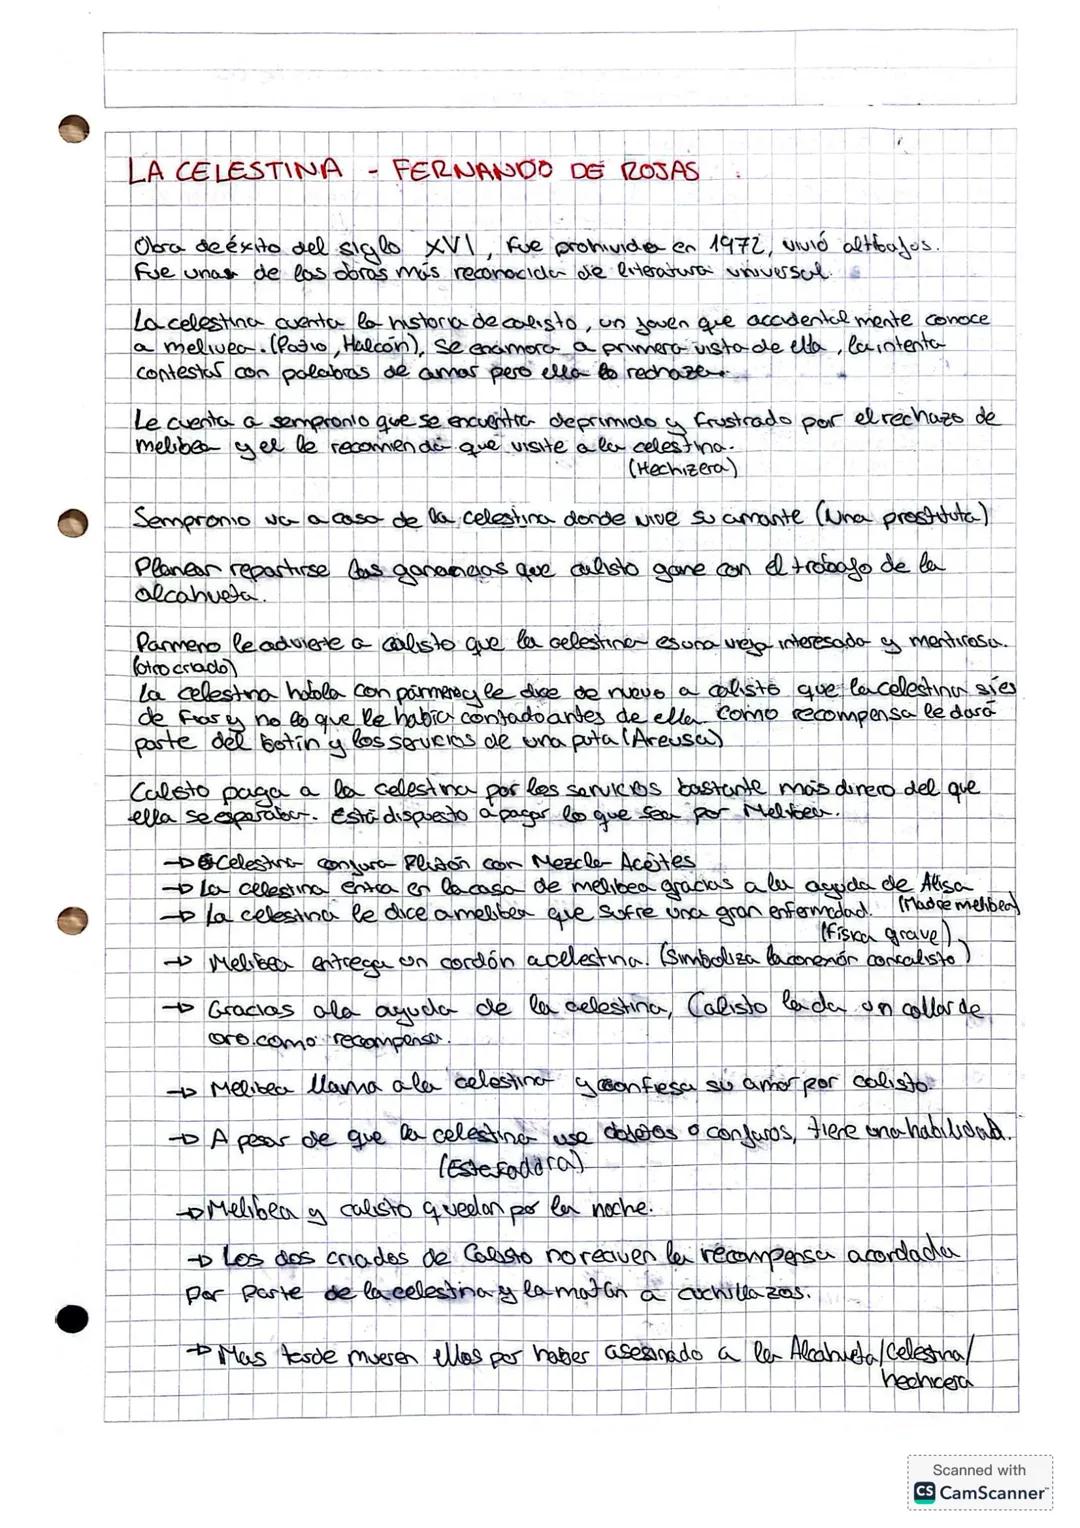 LA CELESTINA - FERNANDO DE ROJAS
Obra de éxito del siglo XVI, fue prohivida en 1972, vivió altibajos.
Fue unas de las obras más reconocida de literatura universal.
La celestina cuenta la historia de calisto, un joven que accidentalmente conoce
a melivea. (Patio, Halcón), se enamora a primera vista de ella, la intenta
contestar con palabras de amar pero ella lo rechaza.
Le cuenta a sempronio que se encuentra deprimido y frustrado por el rechazo de
melibea y el le recomienda que visite a la celestina.
(Hechizera)
Sempronio va a casa de la celestina donde vive su amante (Una prostituta)
Planear repartirse las ganancias que calisto gane con el trabajo de la
alcahueta.
Parmeno le advierte a calisto que la celestina es una vieja interesada y mentirosa.
(otro criado)
La celestina habla con pármeno y le dice de nuevo a calisto que la celestina si es
de fiar y no lo que le había contado antes de ella. Como recompensa le dará
parte del botín y los servicios de una puta (Areusa)
Calisto paga a la celestina por los servicios bastante más dinero del que
ella se esperaba. Está dispuesto a pagar lo que sea por Melibea.
→ Celestina conjura Plutón con Mezcla Aceites
→ La celestina entra en la casa de melibea gracias a la ayuda de Alisa
→ La celestina le dice a melibea que sufre una gran enfermedad. (Madre melibea)
(Física grave)
→ Melibea entrega un cordón a celestina. (Simboliza la conexión con calisto)
→ Gracias a la ayuda de la celestina, Calisto la da un collar de
oro como recompensa.
→ Melibea llama a la celestina y confiesa su amor por calisto.
→ A pesar de que la celestina use objetos o conjuros, tiene una habilidad.
(Estafadora)
→ Melibea y calisto quedan por la noche.
→ Los dos criados de Calisto no reciven la recompensa acordada
por parte de la celestina y la matan a cuchillazos.
→ Mas tarde mueren ellos por haber asesinado a la Alcahueta/Celestina/
hechicera
Scanned with
CS CamScanner